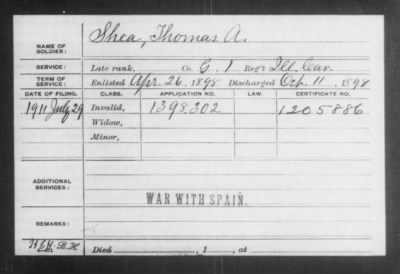 NAME OF SOLDIER: Shea, Thomas A.
SERVICE: Late rank, Co. G. 1 Reg't Ill. Cav.
TERM OF SERVICE: Enlisted Apr. 26, 1898 Discharged Oct. 11, 1898
DATE OF FILING. CLASS. APPLICATION NO. LAW. CERTIFICATE NO.
1911 July 29 Invalid, 1398.302 1205886
Widow,
Minor,
ADDITIONAL SERVICES:
WAR WITH SPAIN.
REMARKS:
Died , 1 , at